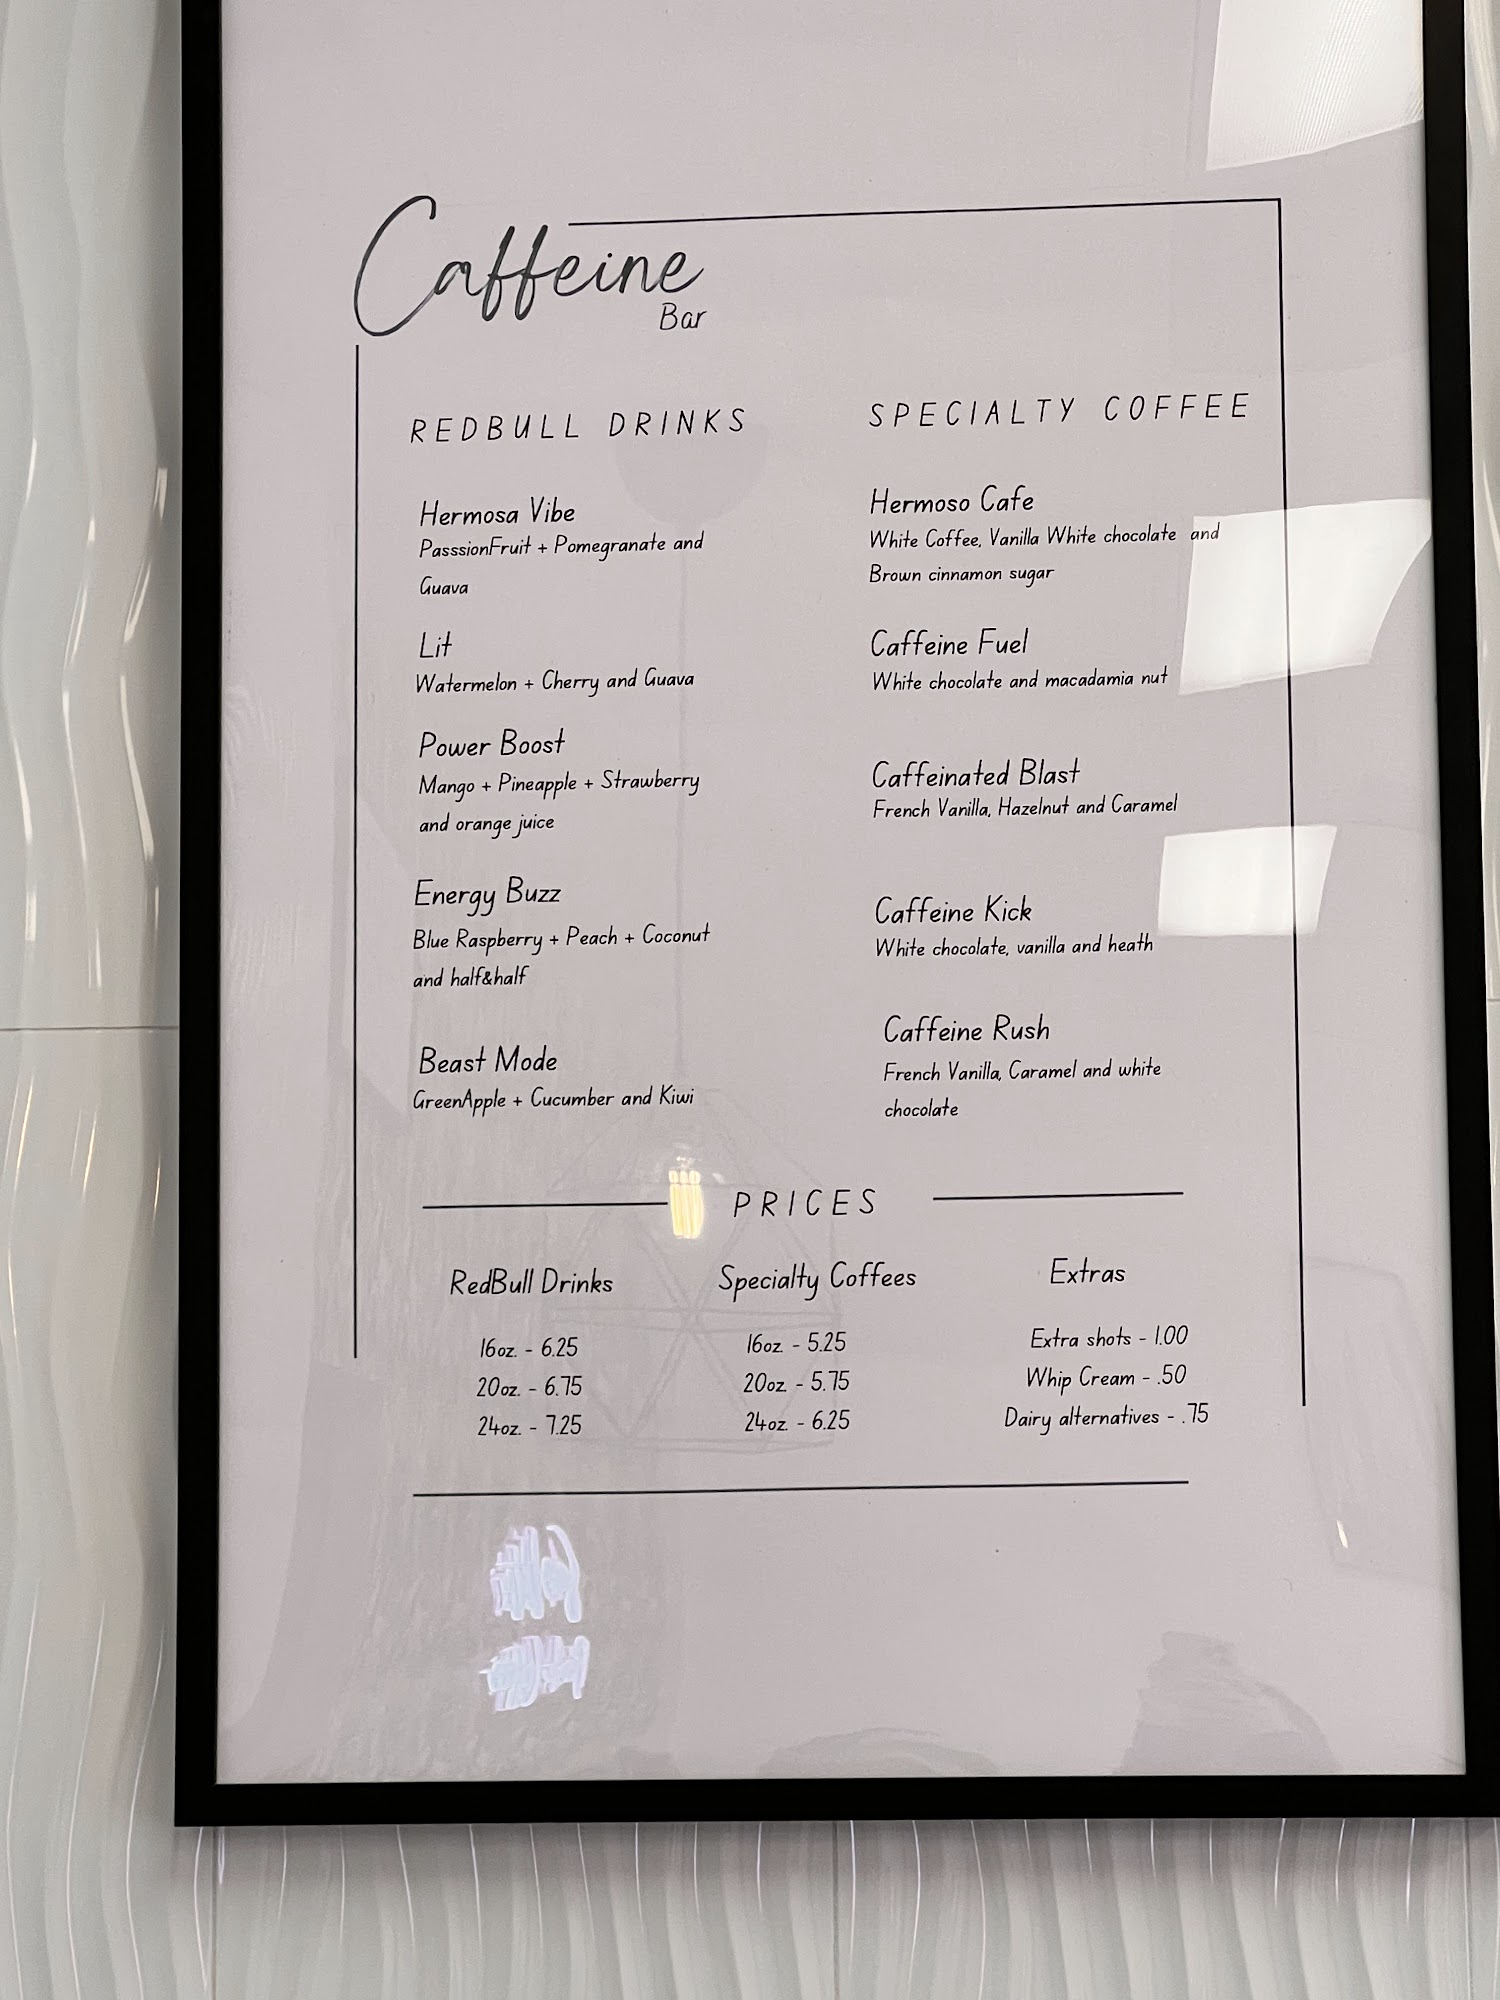 Caffeine
Bar
REDBULL DRINKS
Hermosa Vibe
PasssionFruit + Pomegranate and
Guava
Lit
Watermelon + Cherry and Guava
Power Boost
Mango + Pineapple + Strawberry
and orange juice
Energy Buzz
Blue Raspberry + Peach + Coconut
and half&half
Beast Mode
GreenApple + Cucumber and Kiwi
SPECIALTY COFFEE
Hermoso Cafe
White Coffee, Vanilla White chocolate and
Brown cinnamon sugar
Caffeine Fuel
White chocolate and macadamia nut
Caffeinated Blast
French Vanilla, Hazelnut and Caramel
Caffeine Kick
White chocolate, vanilla and heath
Caffeine Rush
French Vanilla, Caramel and white
chocolate
PRICES
RedBull Drinks
16oz. - 6.25
20oz. - 6.75
24oz. - 7.25
Specialty Coffees
16oz. - 5.25
20oz. - 5.75
24oz. - 6.25
Extras
Extra shots - 1.00
Whip Cream - .50
Dairy alternatives - .75